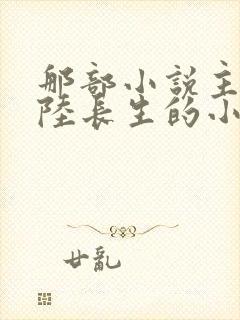 那部小說主
陸長生的小
廿亂